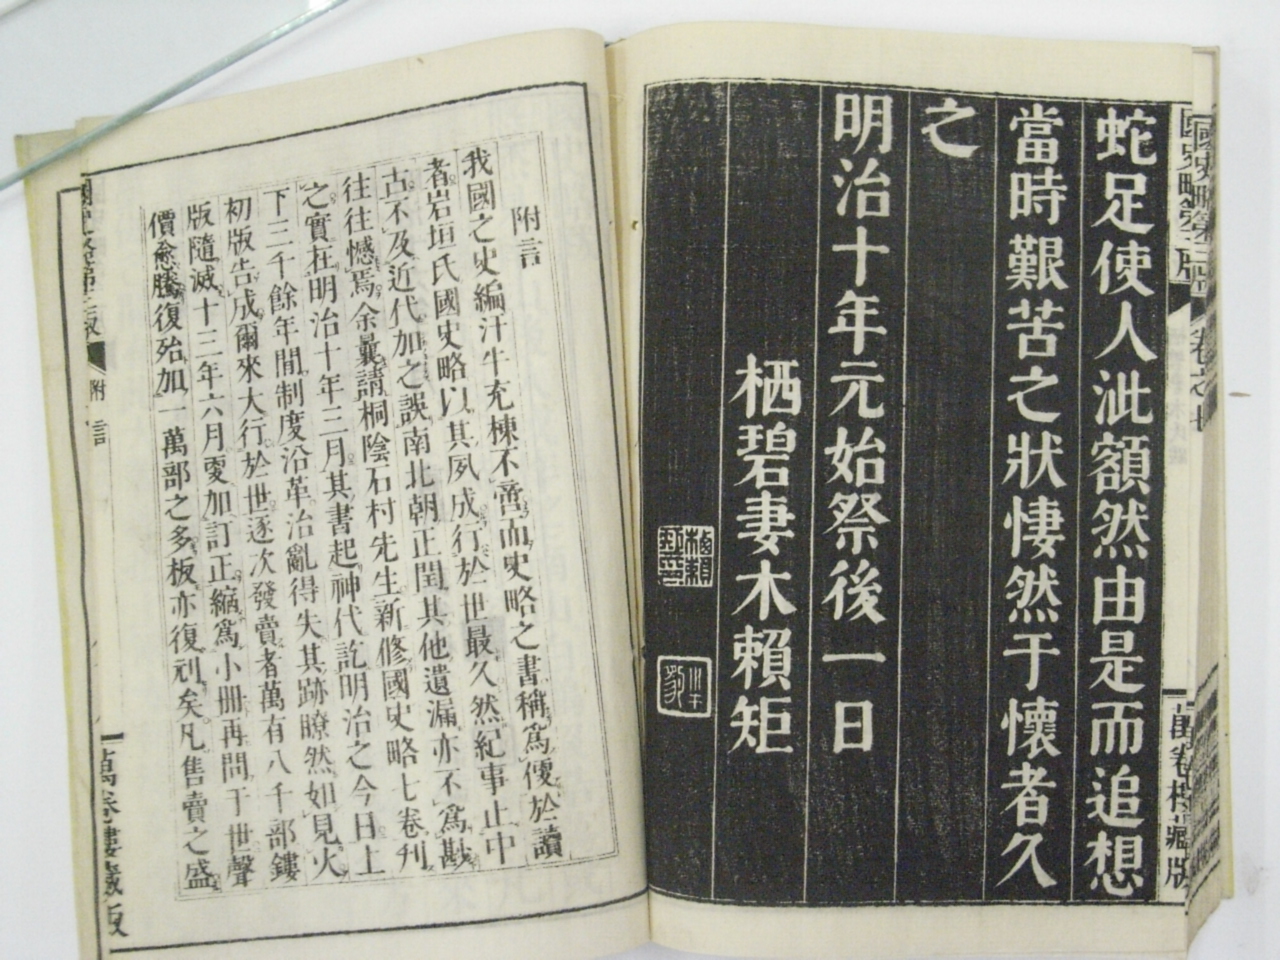 蛇足使人泚額然由是而追想
當時艱苦之狀悽然于懷者久
之
明治十年元始祭後一日
栖碧妻木賴矩
萬卷樓藏版
附言
我國之史編汗牛充棟不啻而史略之書稱爲便於讀
者岩垣氏國史略以其夙成行於世最久然紀事止中
古不及近代加之誤南北朝正閏其他遺漏亦不爲尠
往往憾焉余曩請桐陰石村先生新修國史略七卷刋
之實在明治十年三月其書起神代訖明治之今日上
下二千餘年間制度沿革治亂得失其跡瞭然如見火
初版告成爾來大行於世逐次發賣者萬有八千部鏤
版隨滅十三年六月更加訂正縮爲小冊再問于世聲
價愈騰復殆加一萬部之多板亦復刓矣凡售賣之盛
附言
萬卷樓藏版